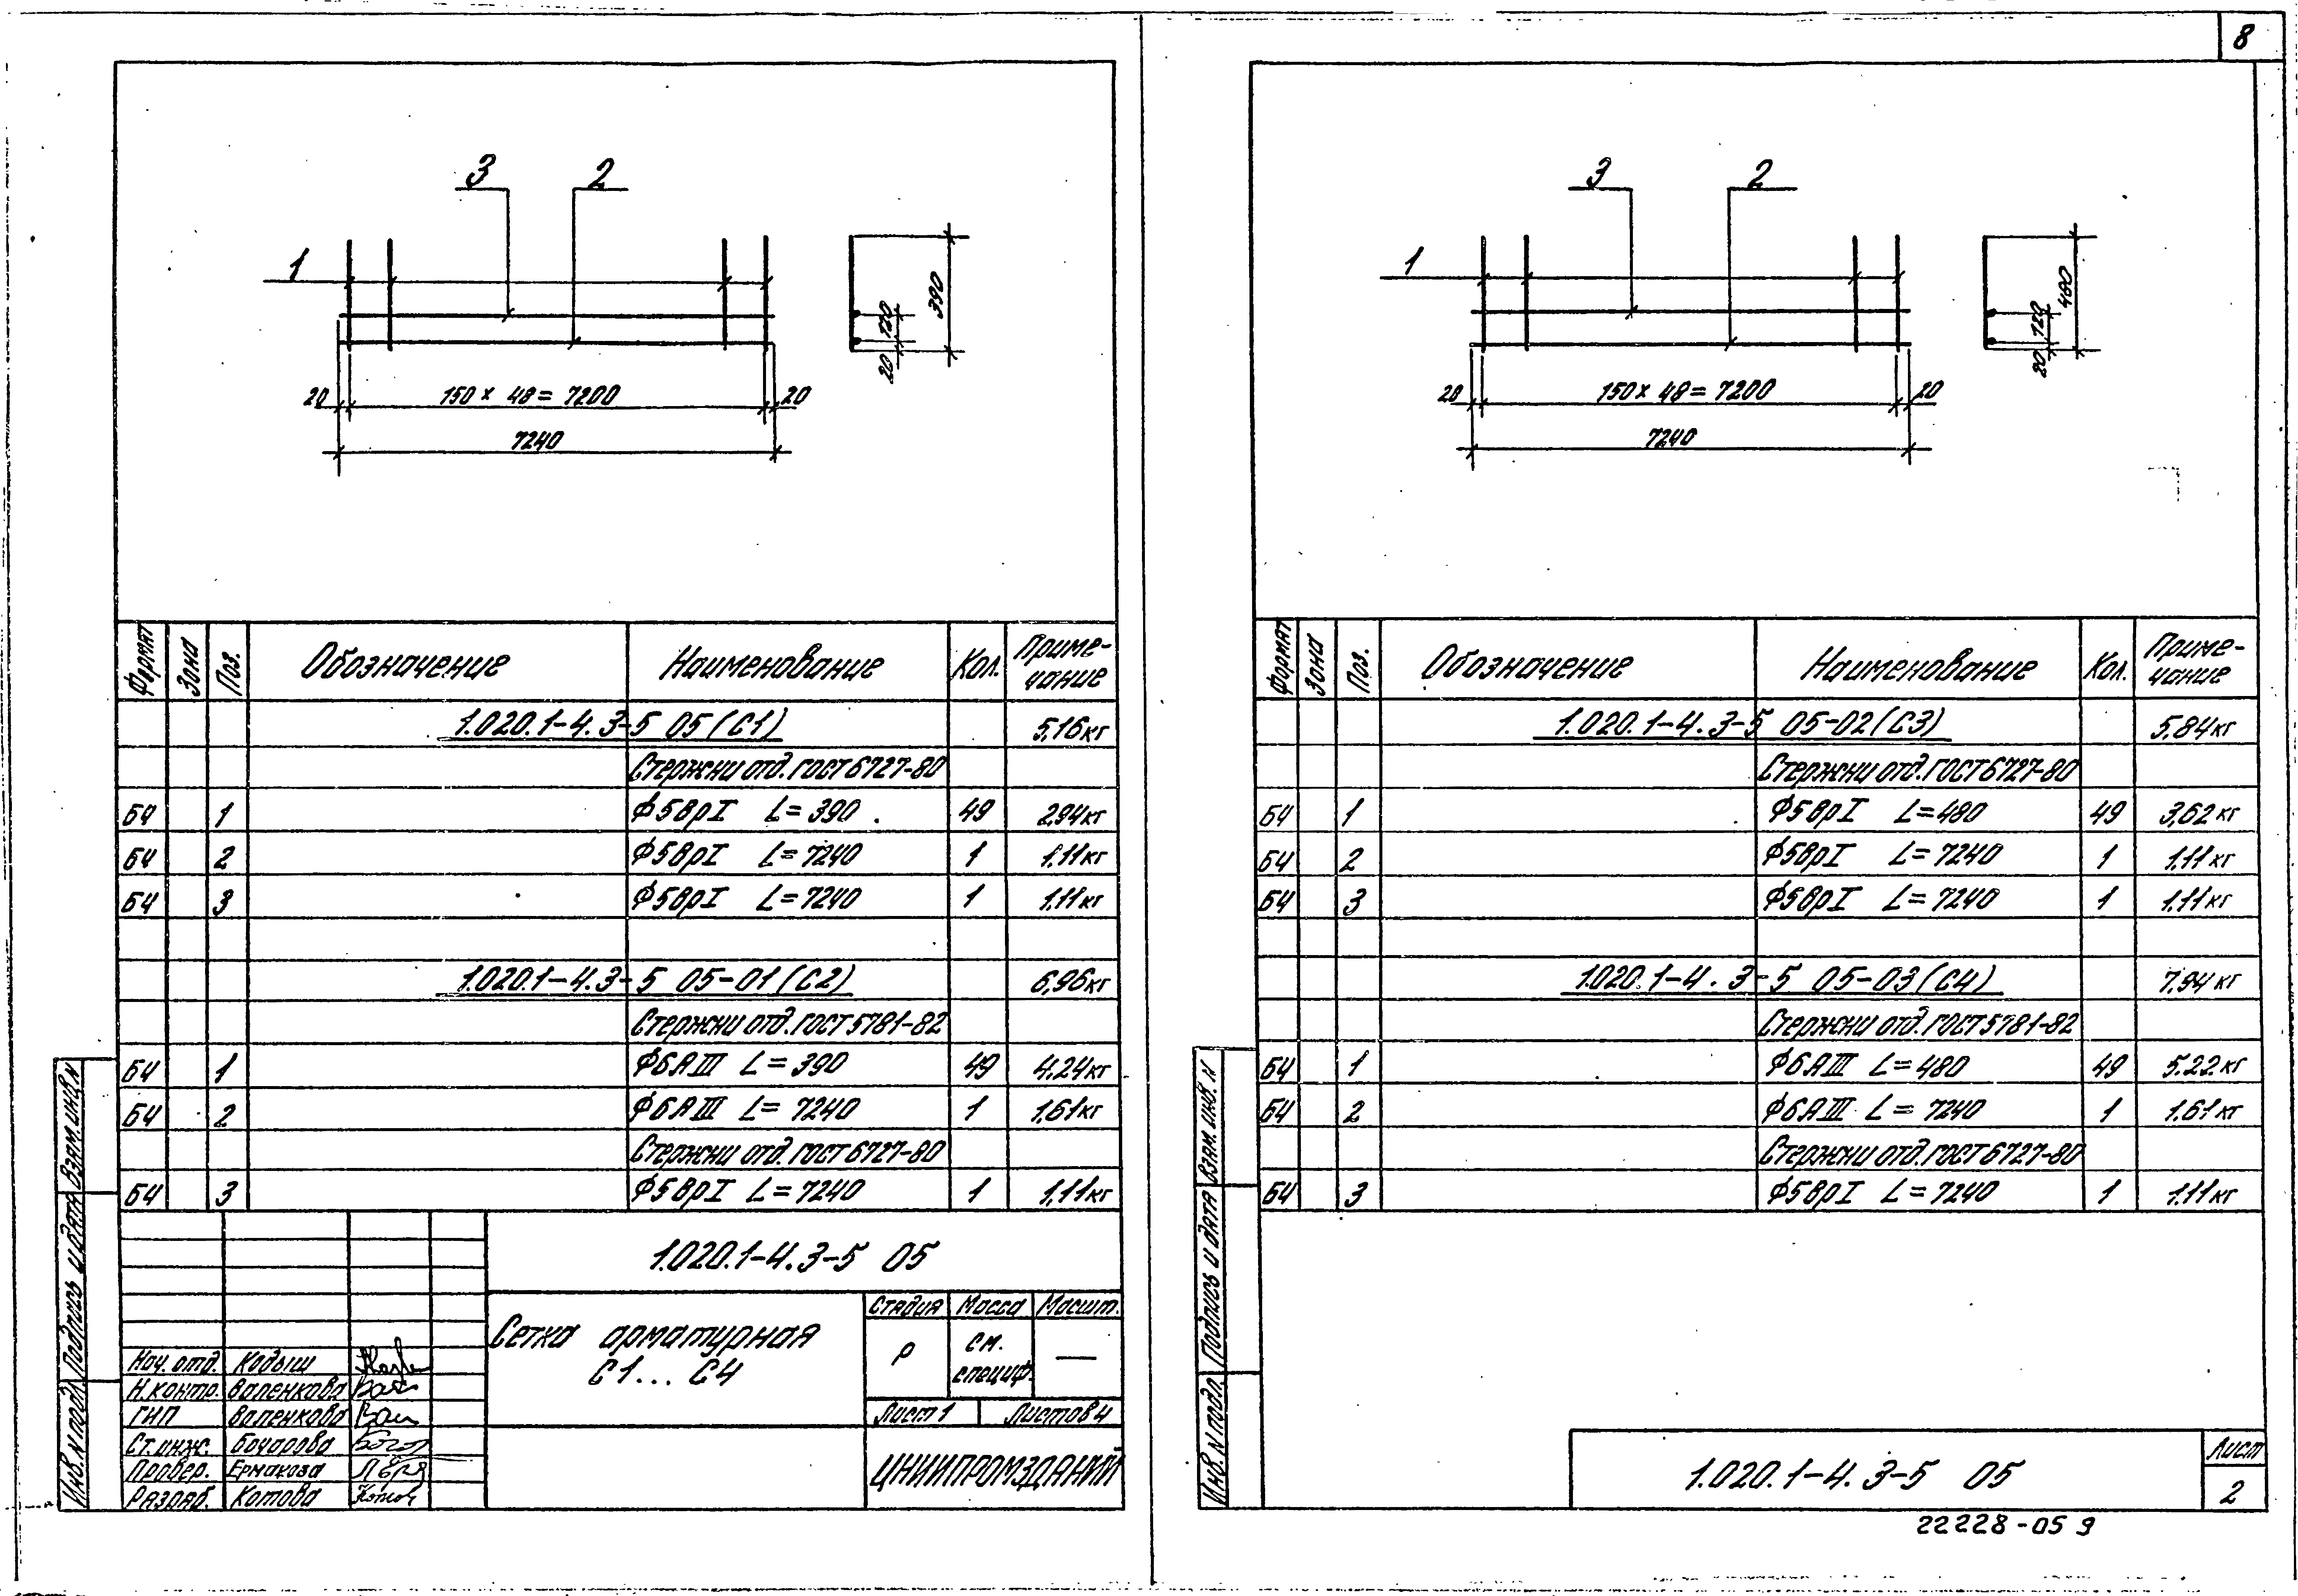 8
3 2
1
390
120
20
20 150 х 48 = 7200 20
7240
Формат Зона Поз. Обозначение Наименование Кол. Приме-
чание
1.020.1-4.3-5 05 (С1) 5,16кг
Стержни отд. ГОСТ 6727-80
БЧ 1 Ф5ВрI L=390 49 2,94кг
БЧ 2 Ф5ВрI L=7240 1 1,11кг
БЧ 3 Ф5ВрI L=7240 1 1,11кг
1.020.1-4.3-5 05-01 (С2) 6,96кг
Стержни отд. ГОСТ 5781-82
БЧ 1 Ф6АIII L=390 49 4,24кг
БЧ 2 Ф6АIII L=7240 1 1,61кг
Стержни отд. ГОСТ 6727-80
БЧ 3 Ф5ВрI L=7240 1 1,11кг
1.020.1-4.3-5 05
Сетка арматурная
С1... С4
Стадия Масса Масшт.
Р см.
специф. —
Лист 1 Листов 4
ЦНИИПРОМЗДАНИЙ
Нач. отд. Кодыш
Н.контр. Валенкова
ГИП Валенкова
Ст.инж. Бочарова
Провер. Ермакова
Разраб. Котова
Инв.N подл. Подпись и дата Взам.инв.N
3 2
1
480
120
20
20 150х 48 = 7200 20
7240
Формат Зона Поз. Обозначение Наименование Кол. Приме-
чание
1.020.1-4.3-5 05-02 (С3) 5,84кг
Стержни отд. ГОСТ 6727-80
БЧ 1 Ф5ВрI L=480 49 3,62кг
БЧ 2 Ф5ВрI L=7240 1 1,11кг
БЧ 3 Ф5ВрI L=7240 1 1,11кг
1.020.1-4.3-5 05-03 (С4) 7,94кг
Стержни отд. ГОСТ 5781-82
БЧ 1 Ф6АIII L=480 49 5,22кг
БЧ 2 Ф6АIII L=7240 1 1,61кг
Стержни отд. ГОСТ 6727-80
БЧ 3 Ф5ВрI L=7240 1 1,11кг
Инв.N подл. Подпись и дата Взам. инв. N
1.020.1-4.3-5 05
Лист
2
22228-05 9